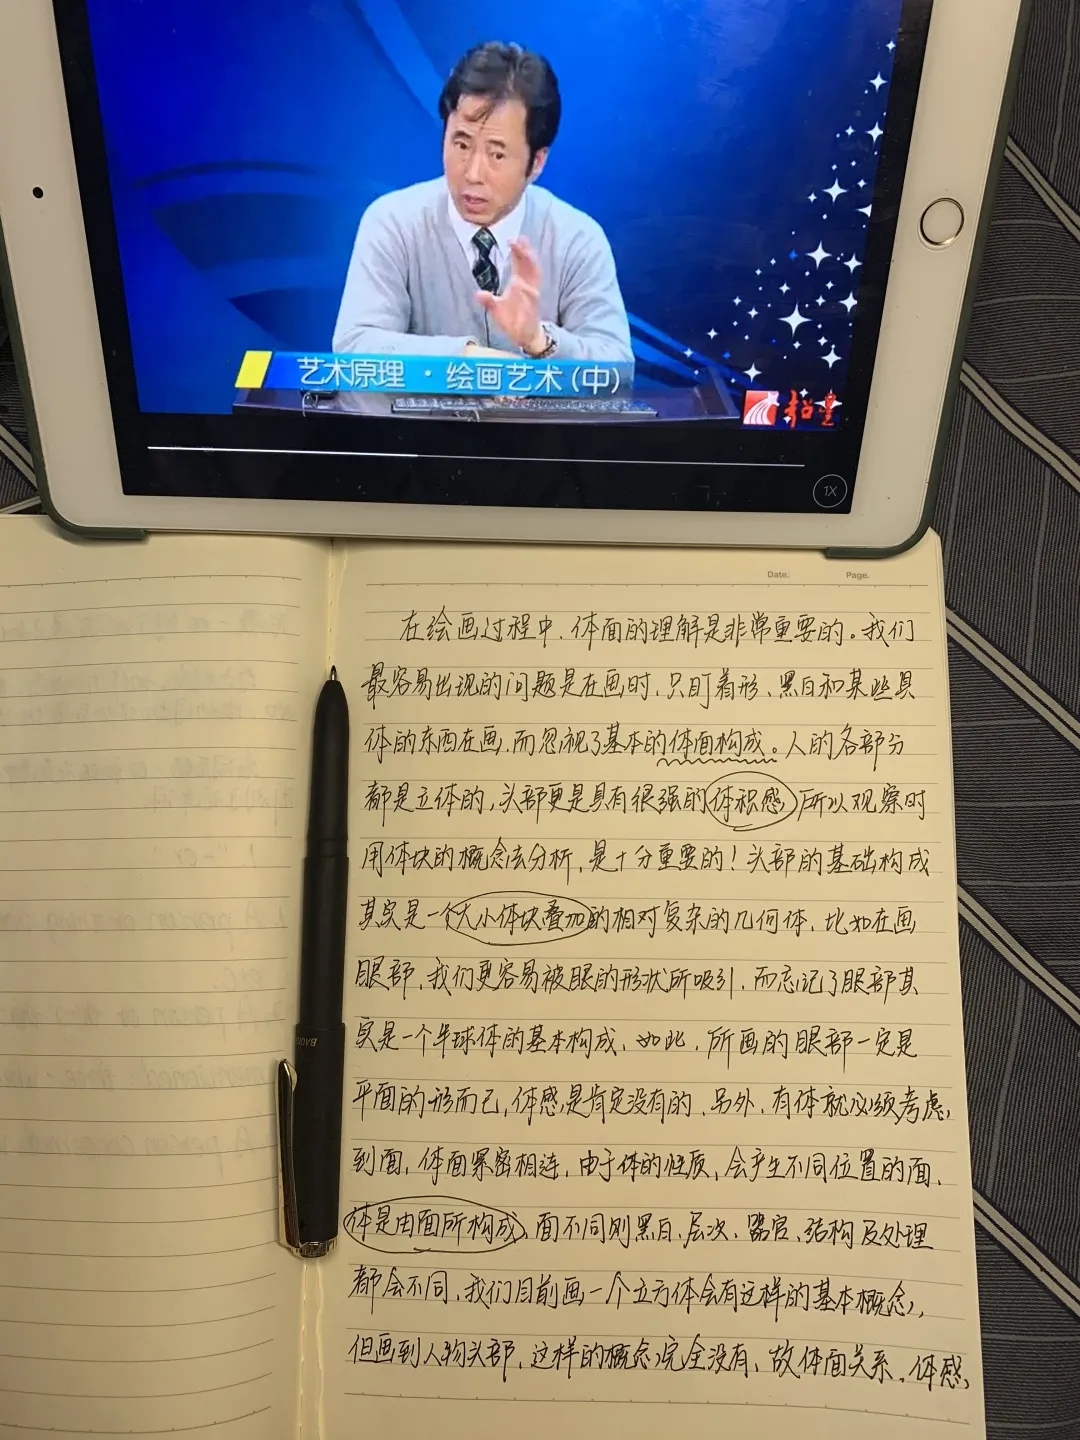 艺术原理·绘画艺术(中)
超星
1X
Date.
Page.
在绘画过程中、体面的理解是非常重要的。我们
最容易出现的问题是在画时、只盯着形、黑白和某些具
体的东西在画,而忽视了基本的体面构成。人的各部分
都是立体的,头部更是具有很强的体积感,所以观察时
用体块的概念去分析,是十分重要的!头部的基础构成
其实是一个大小体块叠加的相对复杂的几何体,比如在画
眼部,我们更容易被眼的形状所吸引,而忘记了眼部其
实是一个半球体的基本构成、如此,所画的眼部一定是
平面的形而已,体感是肯定没有的、另外,有体就必须考虑
到面,体面紧密相连,由于体的性质,会产生不同位置的面、
体是由面所构成,面不同则黑白、层次、器官、结构及处理
都会不同,我们目前画一个立方体会有这样的基本概念,
但画到人物头部,这样的概念完全没有、故体面关系、体感,